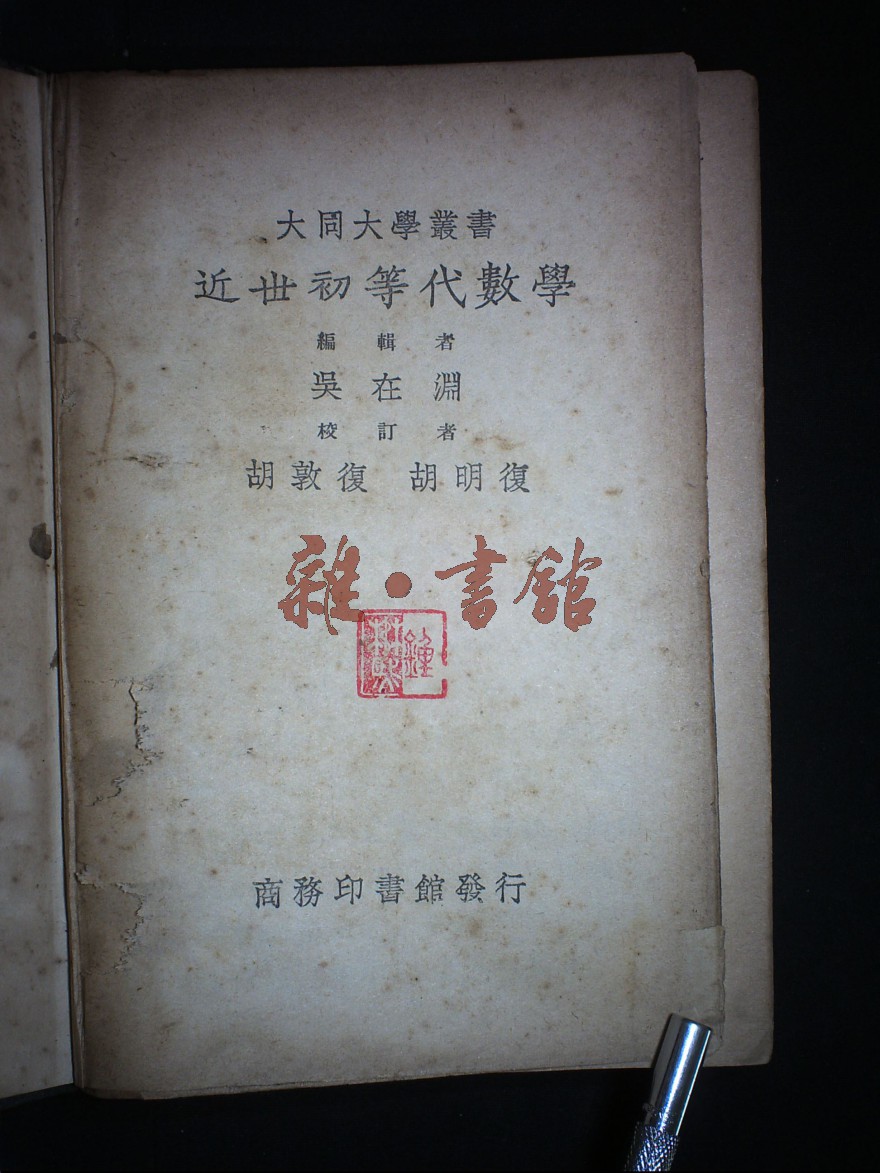 大同大學叢書
近世初等代數學
編輯者
吳在淵
校訂者
胡敦復 胡明復
雜·書館
商務印書館發行